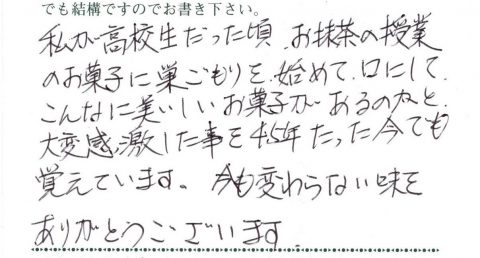 でも結構ですのでお書き下さい。
私が高校生だった頃 お抹茶の授業
のお菓子に巣ごもりを、始めて、口にして、
こんなに美いしいお菓子があるのねと、
大変感激した事を45年たった今でも
覚えています。 今も変わらない味を
ありがとうございます。